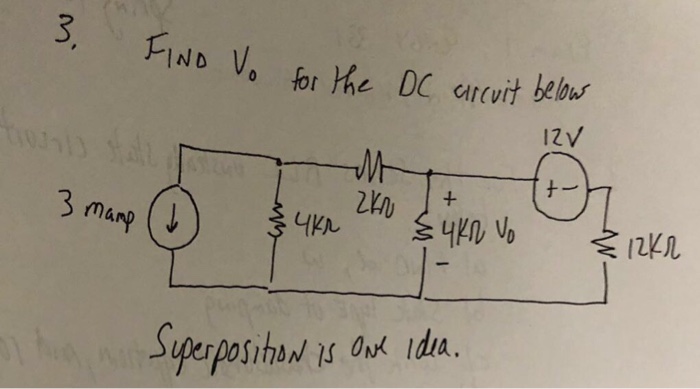 3. FIND Vo for the DC circuit below
12V
+ -
3 mamp
4KΩ
2KΩ
+
4KΩ Vo
-
12KΩ
Superposition is one idea.